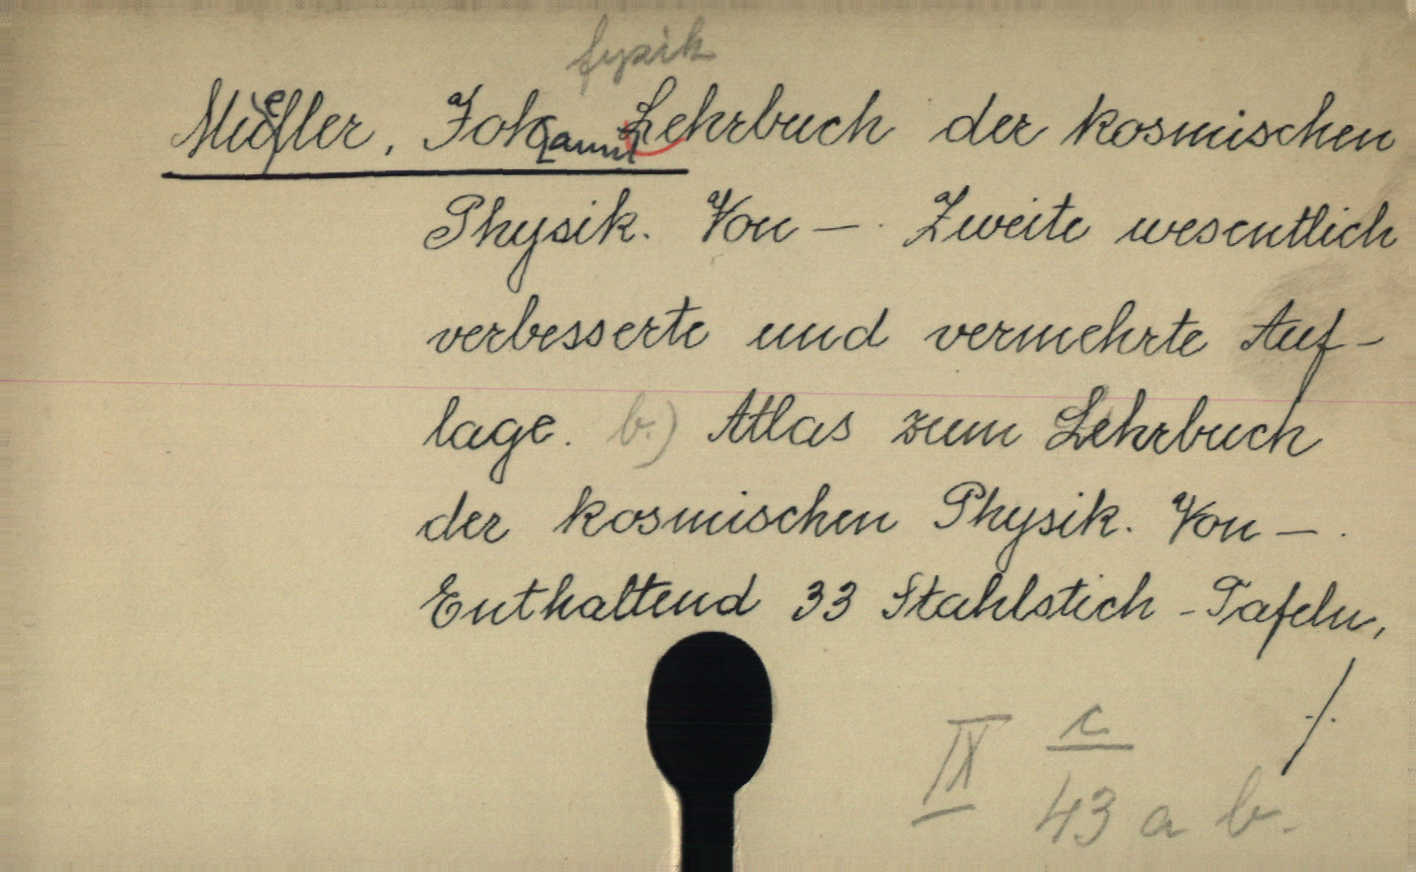 fyzik
Mueller, Joh[ann] Lehrbuch der kosmischen
Physik. Von —. Zweite wesentlich
verbesserte und vermehrte Auf-
lage. b.) Atlas zum Lehrbuch
der kosmischen Physik. Von —.
Enthaltend 33 Stahlstich-Tafeln,
./.
IX c
43 a b.